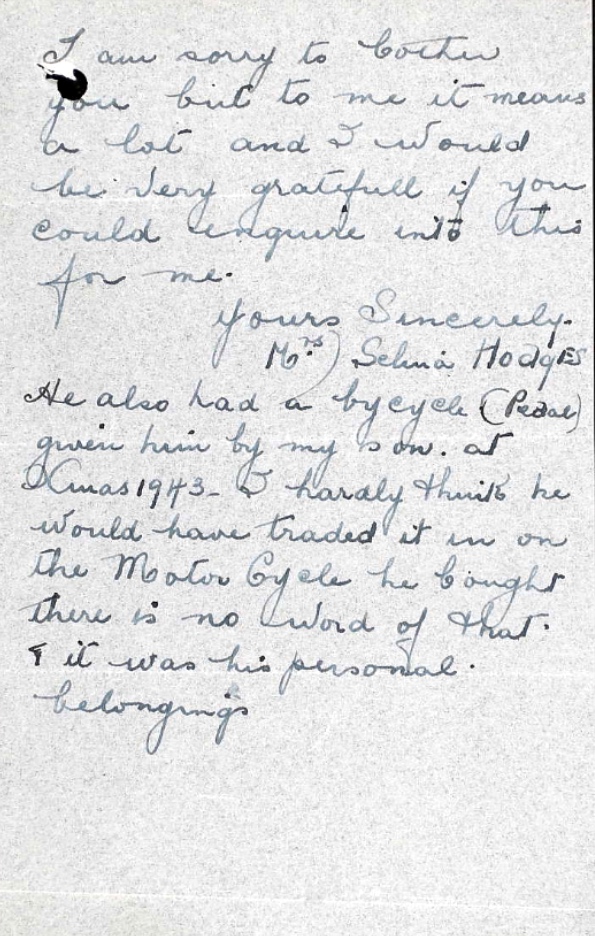 I am sorry to bother
you but to me it means
a lot and I would
be very gratefull if you
could enquire into this
for me.
Yours Sincerely.
Mrs) Selina Hodges
He also had a bycycle (Pedal)
given him by my son. at
Xmas 1943 - I hardly think he
would have traded it in on
the Motor Cycle he bought
there is no word of that.
& it was his personal.
belongings